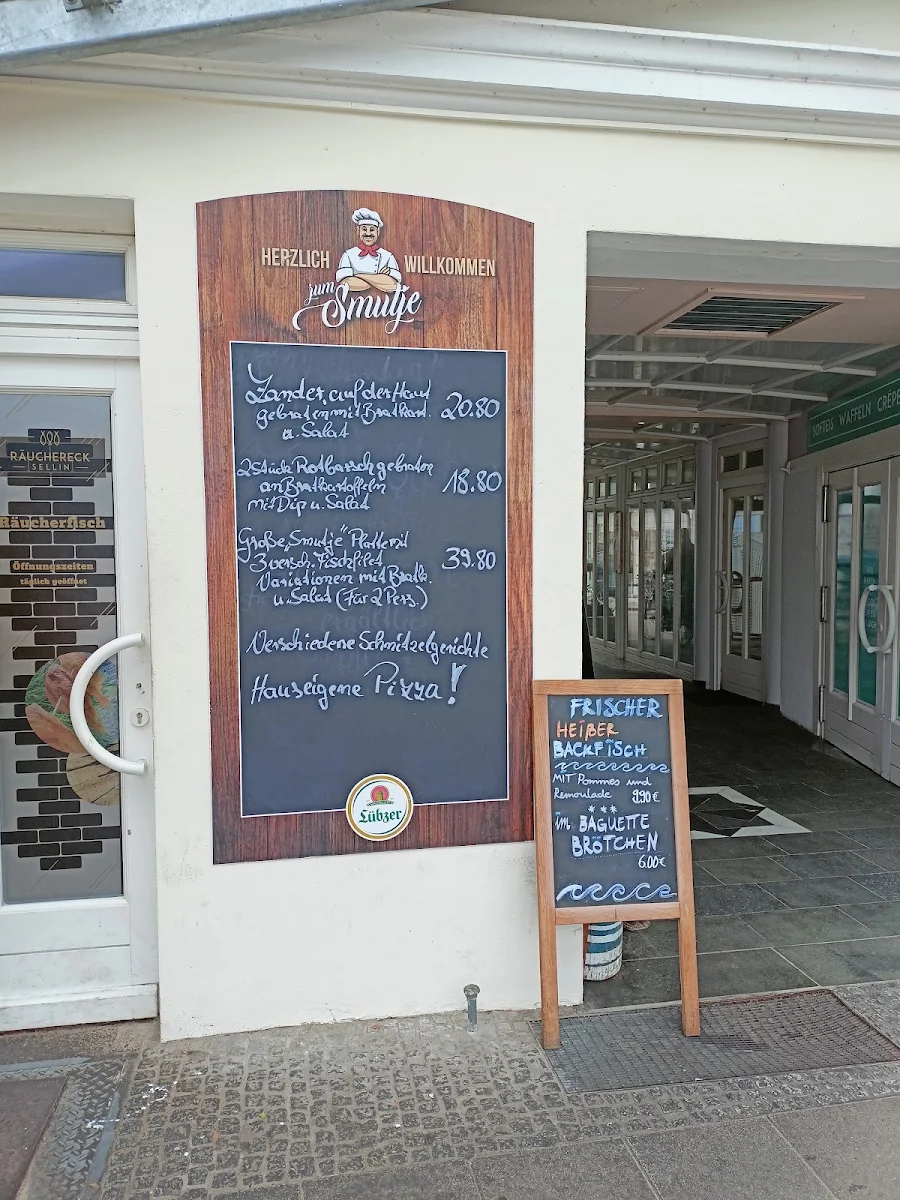 HERZLICH WILLKOMMEN
zum
Smutje
Zander, auf der Haut
gebraten mit Bratkart. 20.80
u. Salat
2 Stück Rotbarsch gebraten
an Bratkartoffeln 18.80
mit Dip u. Salat
Große „Smutje" Platte mit
3 versch. Fischfilet 39.80
Variationen mit Bratk.
u. Salat (für 2 Pers.)
Verschiedene Schnitzelgerichte
Hauseigene Pizza!
Lübzer
RÄUCHERECK
SELLIN
Räucherfisch
Öffnungszeiten
täglich geöffnet
FRISCHER
HEIßER
BACKFISCH
MIT Pommes und
Remoulade 9.90€
im BAGUETTE
BRÖTCHEN
6.00€
SOFTEIS WAFFELN CRÊPE